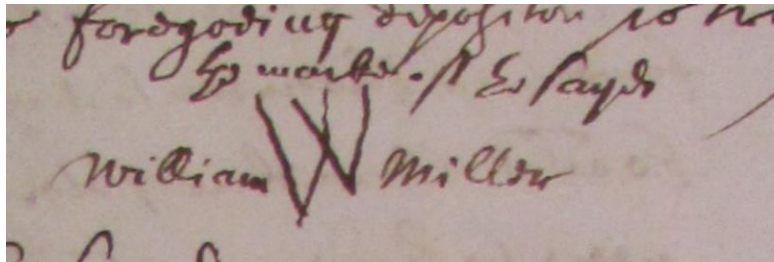 foregoeing deposition is tr
The marke of the sayd
William W Miller